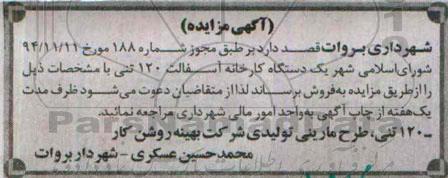 (آگهی مزایده)
شهرداری بروات قصد دارد بر طبق مجوز شماره ۱۸۸ مورخ ۹۴/۱۱/۱۱
شورای‌اسلامی شهر یک دستگاه کارخانه آسفالت ۱۲۰ تنی با مشخصات ذیل
را از طریق مزایده به‌فروش برساند لذا از متقاضیان دعوت می‌شود ظرف مدت
یک‌هفته از چاپ آگهی به‌واحد امور مالی شهرداری مراجعه نمائید.
ـ۱۲۰ تنی، طرح مارینی تولیدی شرکت بهینه روشن کار
محمدحسین عسکری – شهردار بروات